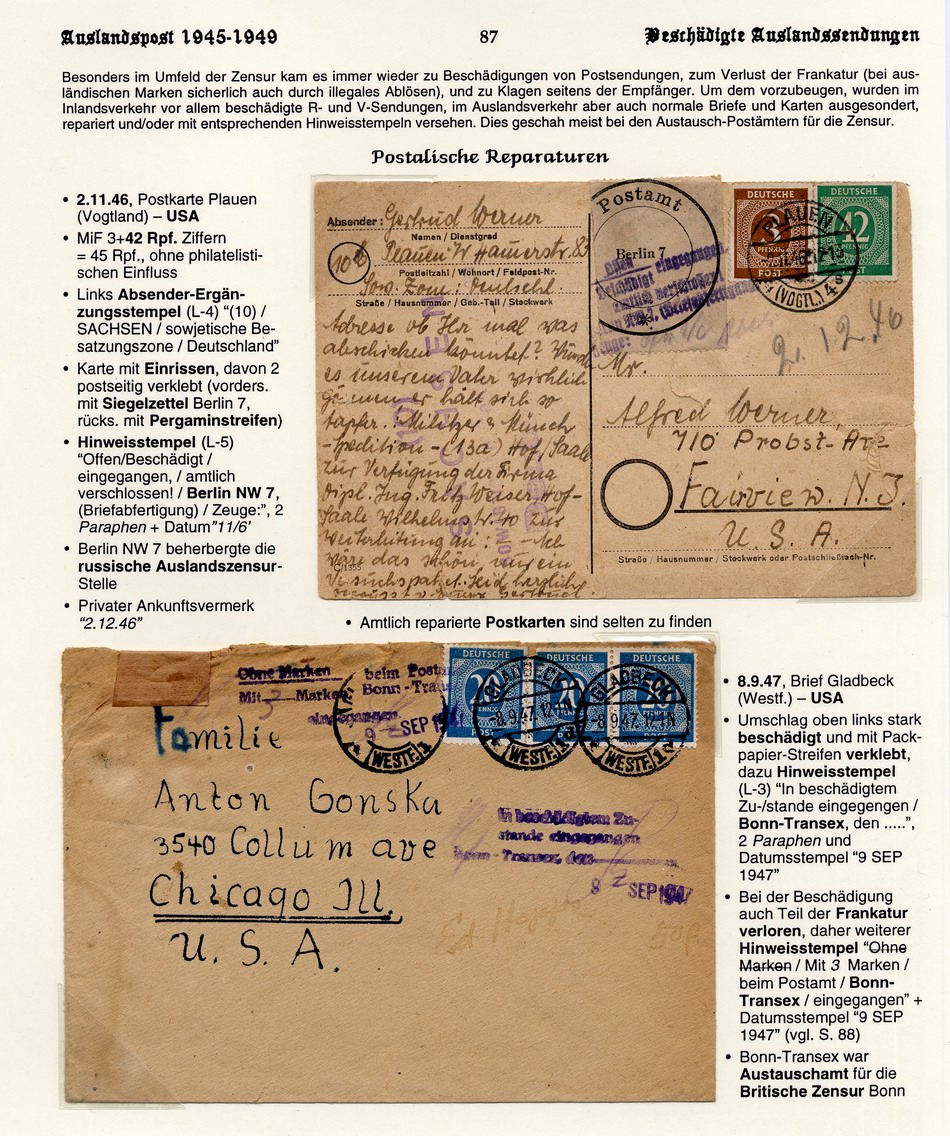 Auslandspost 1945-1949
87
Beschädigte Auslandssendungen
Besonders im Umfeld der Zensur kam es immer wieder zu Beschädigungen von Postsendungen, zum Verlust der Frankatur (bei aus-
ländischen Marken sicherlich auch durch illegales Ablösen), und zu Klagen seitens der Empfänger. Um dem vorzubeugen, wurden im
Inlandsverkehr vor allem beschädigte R- und V-Sendungen, im Auslandsverkehr aber auch normale Briefe und Karten ausgesondert,
repariert und/oder mit entsprechenden Hinweisstempeln versehen. Dies geschah meist bei den Austausch-Postämtern für die Zensur.
Postalische Reparaturen
• 2.11.46, Postkarte Plauen
(Vogtland) – USA
• MiF 3+42 Rpf. Ziffern
= 45 Rpf., ohne philatelisti-
schen Einfluss
• Links Absender-Ergän-
zungsstempel (L-4) “(10) /
SACHSEN / sowjetische Be-
satzungszone / Deutschland”
• Karte mit Einrissen, davon 2
postseitig verklebt (vorders.
mit Siegelzettel Berlin 7,
rücks. mit Pergaminstreifen)
• Hinweisstempel (L-5)
“Offen/Beschädigt /
eingegangen, / amtlich
verschlossen! / Berlin NW 7,
(Briefabfertigung) / Zeuge:”, 2
Paraphen + Datum”11/6’
• Berlin NW 7 beherbergte die
russische Auslandszensur-
Stelle
• Privater Ankunftsvermerk
“2.12.46”
Absender: Gertrud Werner
Namen / Dienstgrad
(10b) Plauen W Hauerstr. 83
Postleitzahl / Wohnort / Feldpost-Nr.
Sow. Zone : Deutschl.
Straße / Hausnummer / Geb.-Teil / Stockwerk
Adresse ob Ihr mal was
abschicken könntet? Würde
es unserem Vater wirklich
gönnen er hält sich so
tapfer.
-Spedition - (13a) Hof/Saale
zur Verfügung der Firma
Dipl. Ing. Fritz Weiser Hof-
Saale Wilhelmstr. 40 zur
Weiterleitung an: - Ich
wäre das schön nur ein
Versuchspaket. Seid herzlichst
C/1355
Postamt
Berlin 7
DEUTSCHE
3
PFENNIG
POST
DEUTSCHE
42
POST
PLAUEN
(VOGTL.) 4
2.12.46
Mr.
Alfred Werner,
710 Probst-Ave
Fairview. N.J.
U. S. A.
Straße / Hausnummer / Stockwerk oder Postschließfach-Nr.
• Amtlich reparierte Postkarten sind selten zu finden
Ohne Marken
Mit 3 Marken
eingegangen
beim Posta
Bonn-Tra
9 - SEP 1947
DEUTSCHE
20
PFENNIG
POST
DEUTSCHE
20
POST
DEUTSCHE
20
POST
GLADBECK
-8.9.47.12-1N
(WESTF.) 1
GLADBECK
-8.9.47.12-1N
(WESTF.) 1
(WESTF.) 1
Familie
Anton Gonska
3540 Collum ave
Chicago Ill.
U. S. A.
In beschädigtem Zu-
stande eingegangen
Bonn-Transex, den
9 - SEP 1947
• 8.9.47, Brief Gladbeck
(Westf.) – USA
• Umschlag oben links stark
beschädigt und mit Pack-
papier-Streifen verklebt,
dazu Hinweisstempel
(L-3) “In beschädigtem
Zu-/stande eingegengen /
Bonn-Transex, den .....”,
2 Paraphen und
Datumsstempel “9 SEP
1947”
• Bei der Beschädigung
auch Teil der Frankatur
verloren, daher weiterer
Hinweisstempel “Ohne
Marken / Mit 3 Marken /
beim Postamt / Bonn-
Transex / eingegangen” +
Datumsstempel “9 SEP
1947” (vgl. S. 88)
• Bonn-Transex war
Austauschamt für die
Britische Zensur Bonn